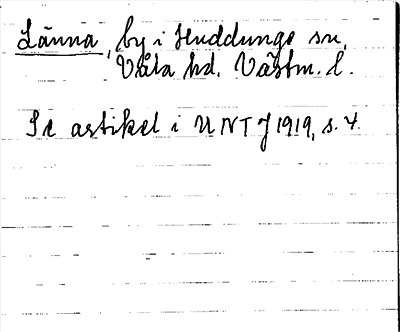 Länna, by i Huddunge sn,
Våla hd. Västm. l.
Se artikel i UNT J 1919, s. 4.